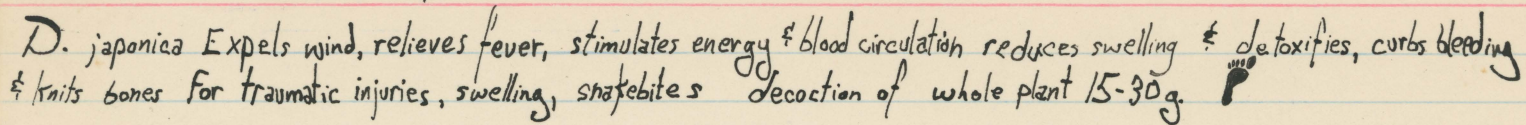 D. japonica Expels wind, relieves fever, stimulates energy & blood circulation reduces swelling & detoxifies, curbs bleeding
& knits bones for traumatic injuries, swelling, snakebites decoction of whole plant 15-30g.